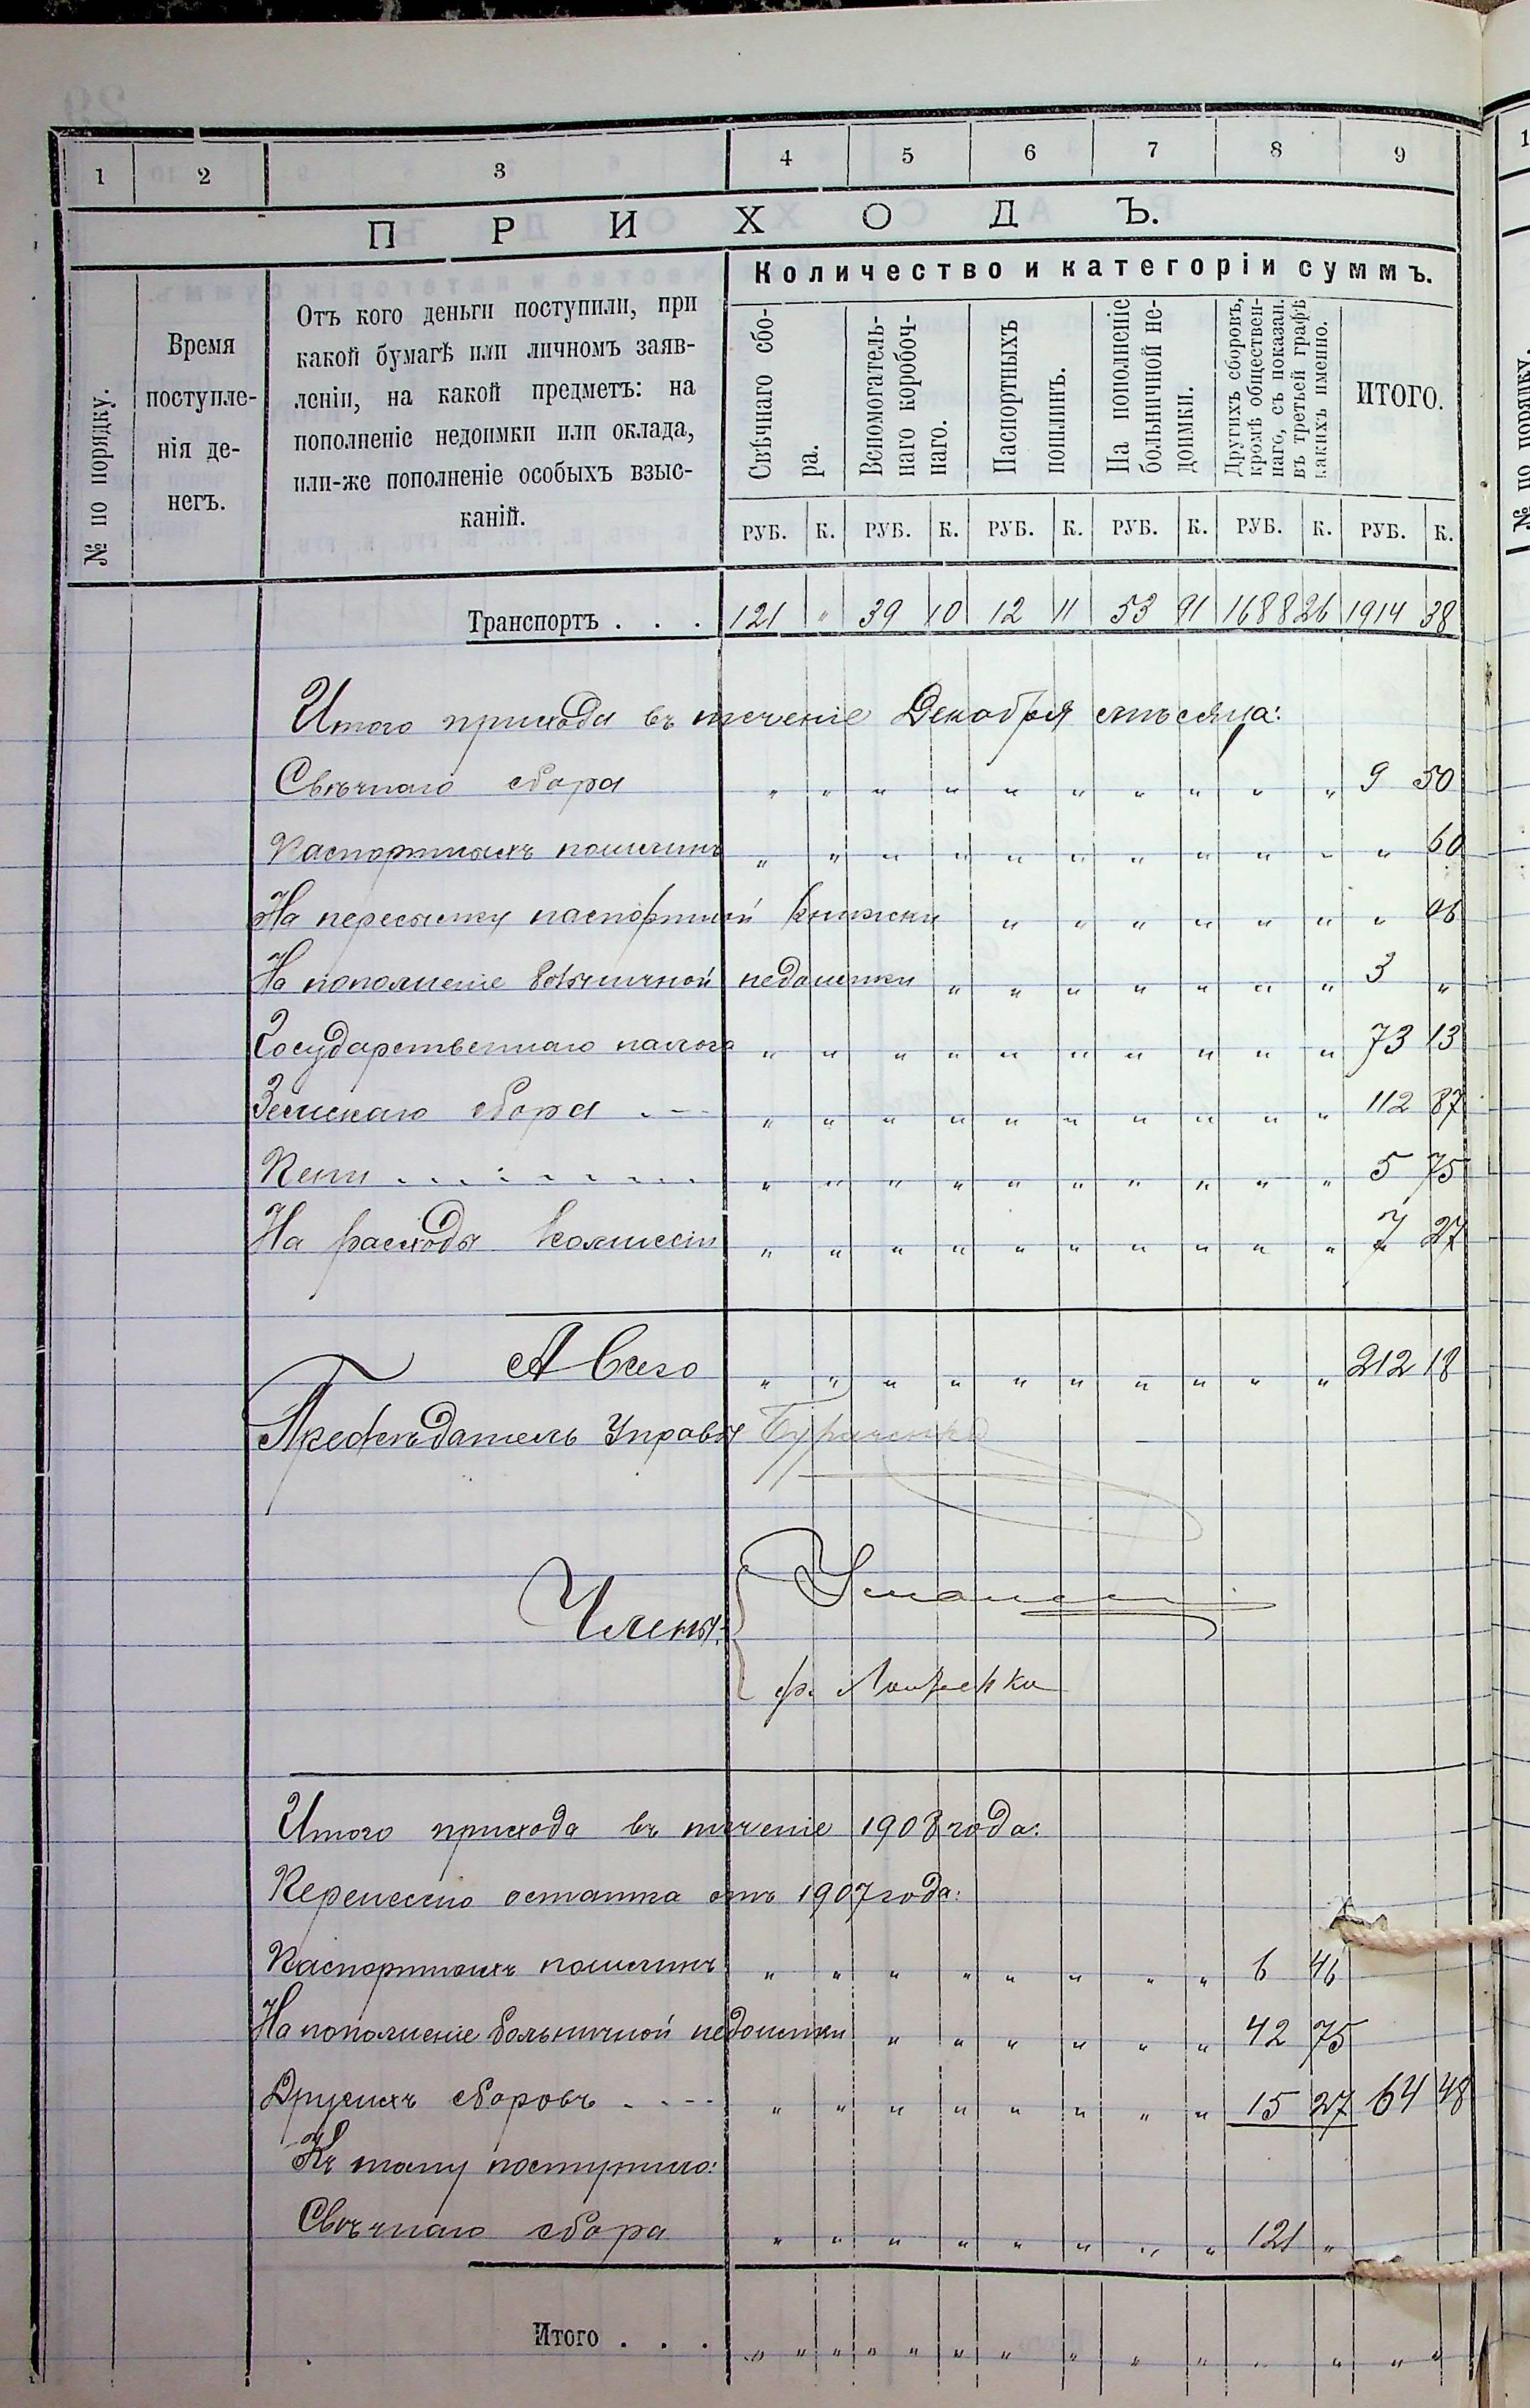 1 2 3 4 5 6 7 8 9
ПРИХОДЪ.
№ по порядку.
Время
поступле-
нія де-
негъ.
Отъ кого деньги поступили, при
какой бумагѣ или личномъ заяв-
леніи, на какой предметъ: на
пополненіе недоимки или оклада,
или-же пополненіе особыхъ взыс-
каній.
Количество и категоріи суммъ.
Свѣчнаго сбо-
ра.
Вспомогатель-
наго коробоч-
наго.
Паспортныхъ
пошлинъ.
На пополненіе
больничной не-
доимки.
Другихъ сборовъ,
кромѣ обществен-
наго, съ показан.
въ третьей графѣ
какихъ именно.
ИТОГО.
РУБ. К. РУБ. К. РУБ. К. РУБ. К. РУБ. К. РУБ. К.
Транспортъ . . . 121 " 39 10 12 11 53 91 1688 26 1914 38
Итого прихода въ теченіе Декабря мѣсяца:
Свѣчнаго сбора " " " " " " " " " " 9 50
Паспортныхъ пошлинъ " " " " " " " " " " " 60
На пересылку паспортной книжки " " " " " " "
На пополненіе больничной недоимки " " " " " " " 3 "
Государственнаго налога " " " " " " " " " " 73 13
Земскаго сбора . - - " " " " " " " " " " 112 87
Пени . . . . . . . . . " " " " " " " " " " 5 75
На расходы Комиссіи " " " " " " " " " " 7 27
А всего " " " " " " " " " " 212 18
Предсѣдатель Управы
Члены:
Итого прихода въ теченіе 1908 года:
Перенесено остатка отъ 1907 года:
Паспортныхъ пошлинъ " " " " " " " " 6 46
На пополненіе больничной недоимки " " " " " " 42 75
Другихъ сборовъ . . - - " " " " " " " " 15 27 64 48
Къ тому поступило:
Свѣчнаго сбора " " " " " " " " 121 "
Итого . . . " " " " " " " " " " " " " "
1
№ по порядку.